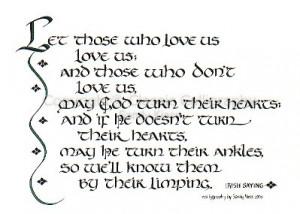 Let those who love us
love us;
and those who don't
love us,
may God turn their hearts;
and if He doesn't turn
their hearts,
may he turn their ankles,
so we'll know them
by their limping.
IRISH SAYING